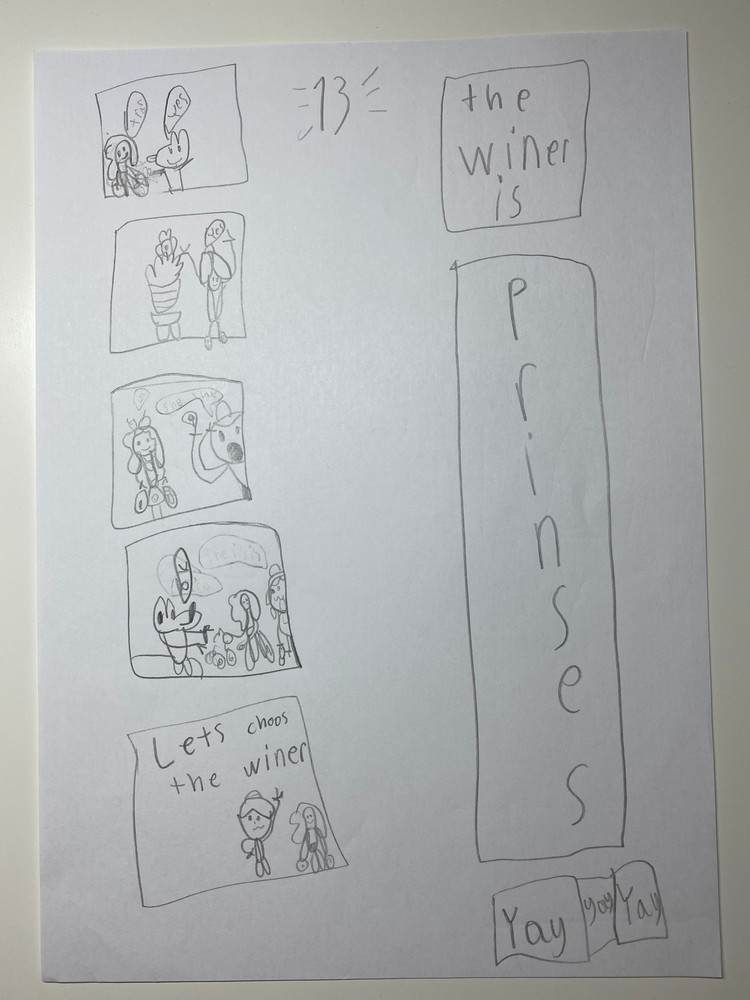 13
yes
Lets choos
the winer
the
winer
is
P
r
i
n
s
e
s
Yay
yay
Yay